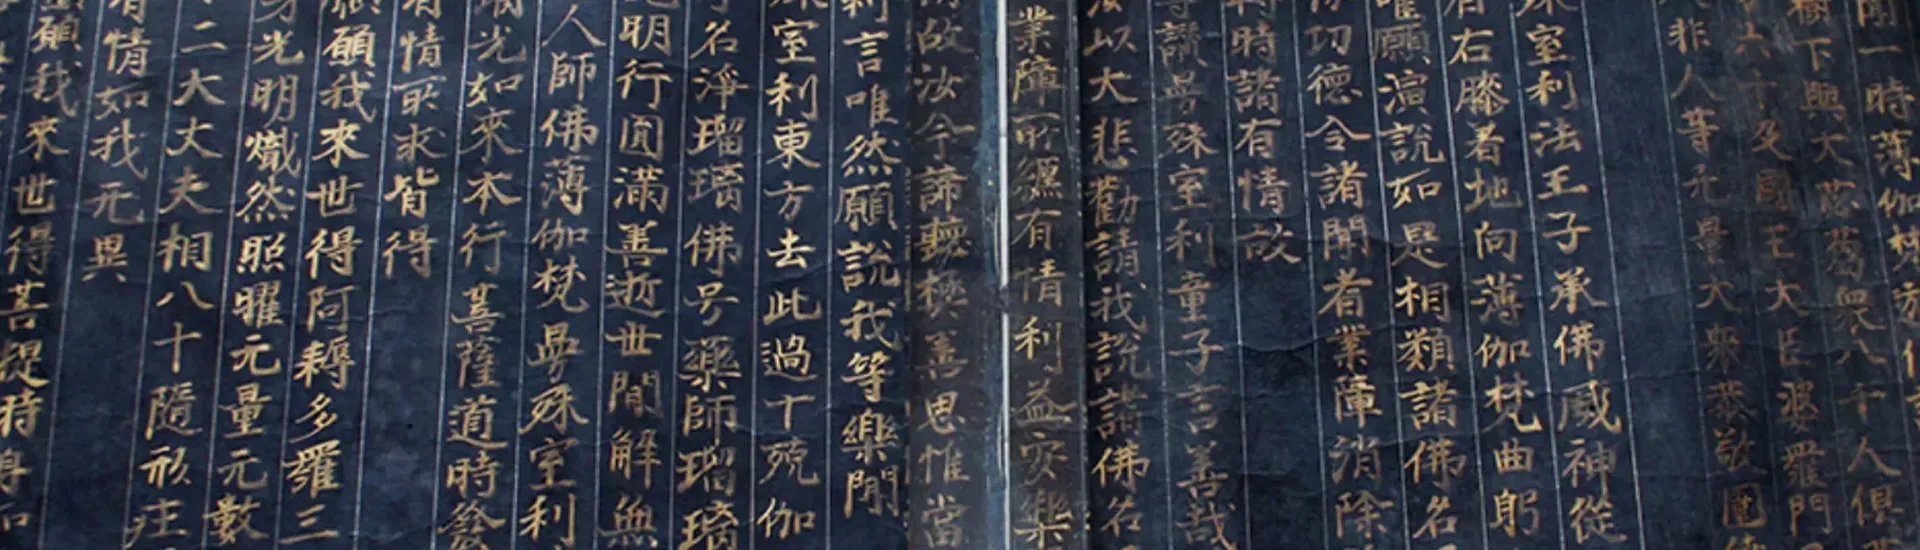 聞一時薄伽梵
樹下與大苾蒭眾八千人俱
六千及國王大臣婆羅門
非人等无量大眾恭敬圍
殊室利法王子承佛威神從
右膝著地向薄伽梵曲躬
唯願演說如是相類諸佛名
功德令諸聞者業障消除
轉時諸有情故
讚曼殊室利童子言善哉
以大悲勸請我說諸佛名
業障所纏有情利益安樂
故汝今諦聽極善思惟當
利言唯然願說我等樂聞
室利東方去此過十殑伽
名淨瑠璃佛号藥師瑠璃
明行圓滿善逝世間解無
人師佛薄伽梵曼殊室利
光如來本行菩薩道時發
有情所求皆得
願我來世得阿耨多羅三
身光明熾然照曜元量元數
二大丈夫相八十隨形莊
有情如我元異
願我來世得菩提時身